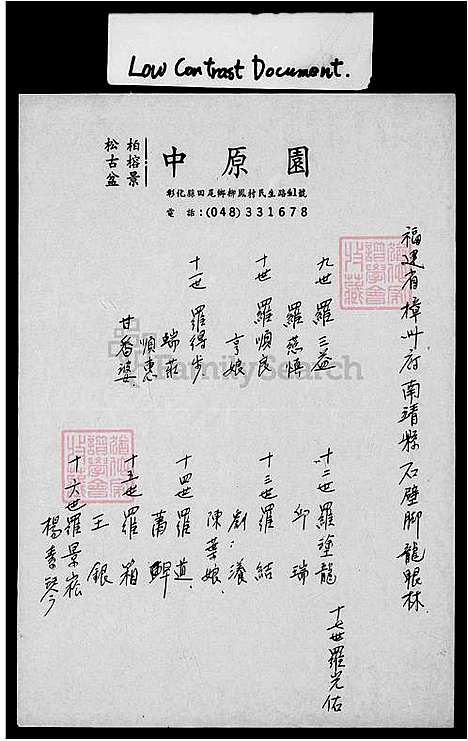 Low Contrast Document.
柏榕景
松古盆
中原園
彰化縣田尾鄉柳鳳村民生路41號
電話:(048)331678
福建省樟州府南靖縣石壁腳龍眼林
九世羅三益
羅慈慎
十世羅順良
亨娘
十一世羅得步
端莊
順惠
甘香婆
十二世羅塗龍
邱瑞
十三世羅結
劉
陳葉娘
十四世羅道
蕭
十五世羅箱
王銀
十六世羅景崧
楊季琴
十七世羅光佑
FamilySearch